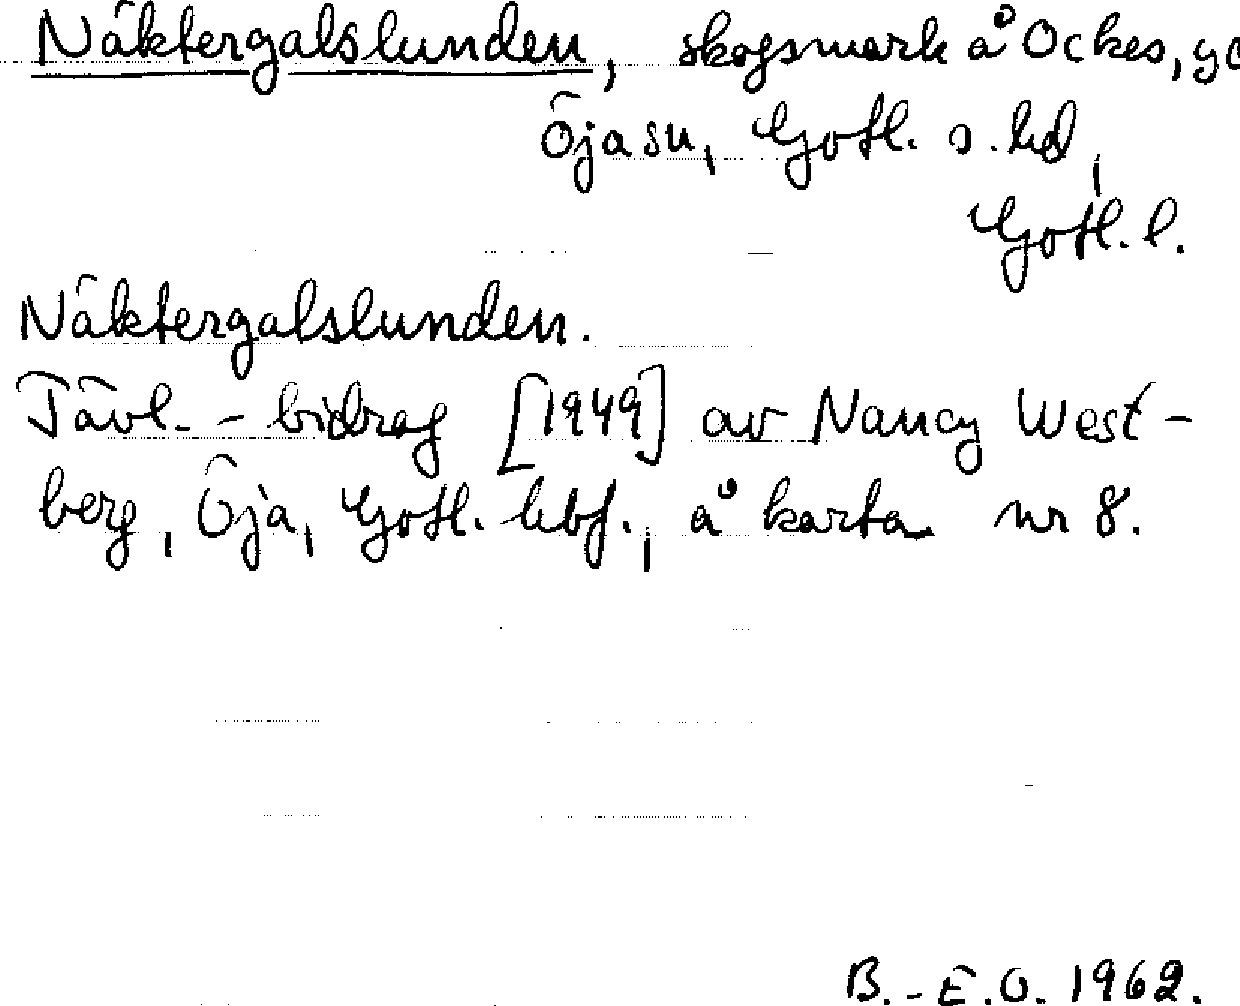 Näktergalslunden, skogsmark å Ockes, gd
Öja sn, Gotl. s. hd,
Gotl. l.
Näktergalslunden.
Tävl. - bidrag [1949] av Nancy West-
berg, Öja, Gotl. hbf., å karta nr 8.
B.-E.O. 1962.